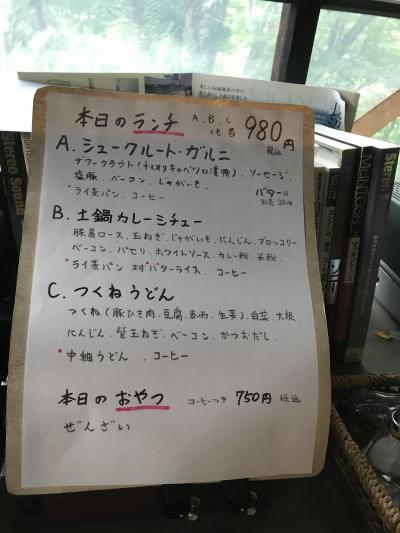 本日のランチ A,B,C とも各 980円 税込
A. シュークルート・ガルニ
ザワークラウト(キャベツの漬物)、ソーセージ、
塩豚、ベーコン、じゃがいも、
・ライ麦パン、コーヒー
バターは
別売20円
B. 土鍋カレーシチュー
豚肩ロース、玉ねぎ、じゃがいも、にんじん、ブロッコリー、
ベーコン、パセリ、ホワイトソース、カレー粉、米粉、
・ライ麦パン 又は バターライス、コーヒー
C. つくねうどん
つくね(豚ひき肉、豆腐、春雨、生姜)、白菜、大根、
にんじん、紫玉ねぎ、ベーコン、かつおだし、
・中細うどん、コーヒー
本日のおやつ コーヒーつき 750円 税込
ぜんざい
Stereo Sound
McINTOSH